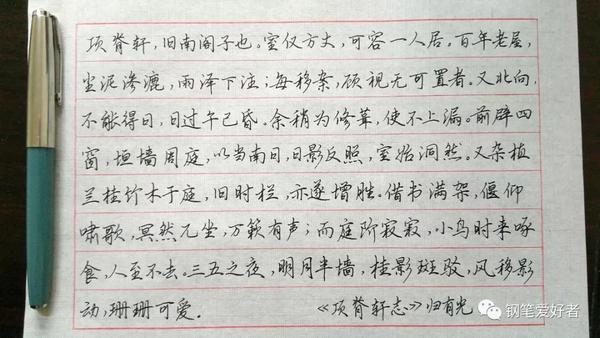 项脊轩，旧南阁子也。室仅方丈，可容一人居。百年老屋，
尘泥渗漉，雨泽下注；每移案，顾视无可置者。又北向，
不能得日，日过午已昏。余稍为修葺，使不上漏。前辟四
窗，垣墙周庭，以当南日，日影反照，室始洞然。又杂植
兰桂竹木于庭，旧时栏，亦遂增胜。借书满架，偃仰
啸歌，冥然兀坐，万籁有声；而庭阶寂寂，小鸟时来啄
食，人至不去。三五之夜，明月半墙，桂影斑驳，风移影
动，珊珊可爱。 《项脊轩志》归有光
钢笔爱好者